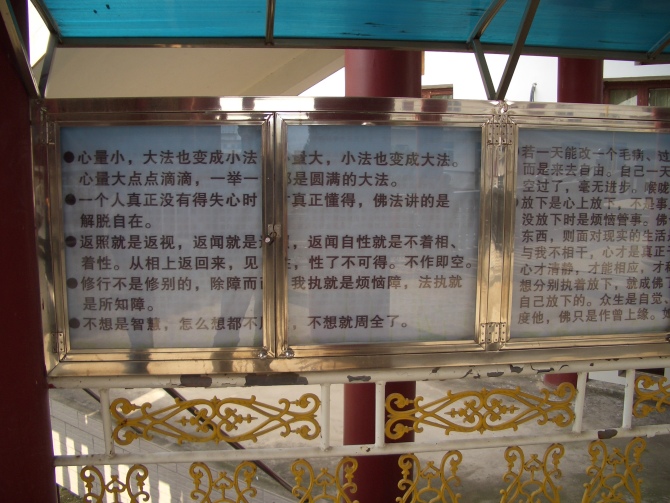 ●心量小，大法也变成小法 心量大，小法也变成大法。
心量大点点滴滴，一举一 都是圆满的大法。
●一个人真正没有得失心时 才真正懂得，佛法讲的是
解脱自在。
●返照就是返视，返闻就是 ，返闻自性就是不着相、
着性。从相上返回来，见 性，性了不可得。不作即空。
●修行不是修别的，除障而 我执就是烦恼障，法执就
是所知障。
●不想是智慧，怎么想都不 ，不想就周全了。
若一天能改一个毛病、
而是来去自由。自己一天
空过了，毫无进步。唉
放下是心上放下，不是事
没放下时是烦恼管事。
东西，则面对现实的生活
与我不相干，心才是真正
心才清静，才能相应，才
想分别执着放下，就成佛了
自己放下的。众生是自觉
度他，佛只是作曾上缘。